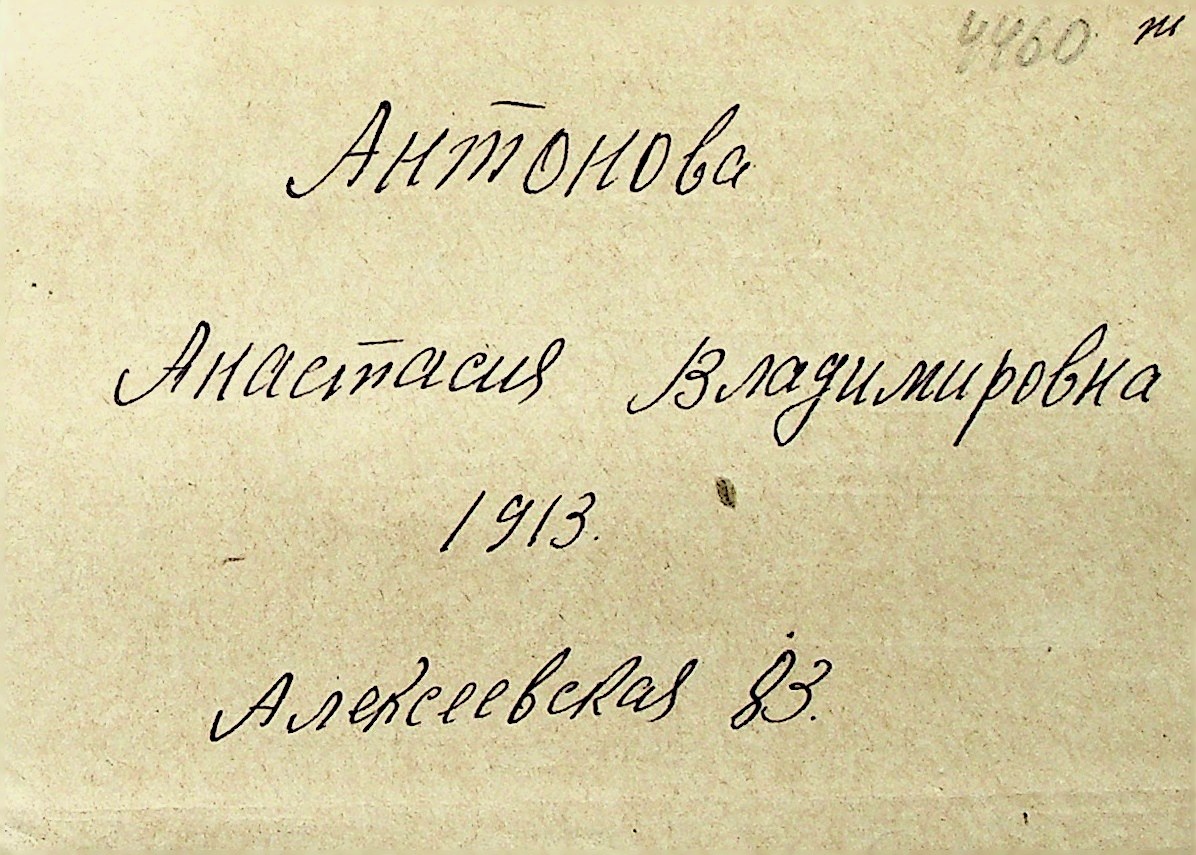 4460 ж
Антонова
Анастасия Владимировна
1913.
Алексеевская 83.